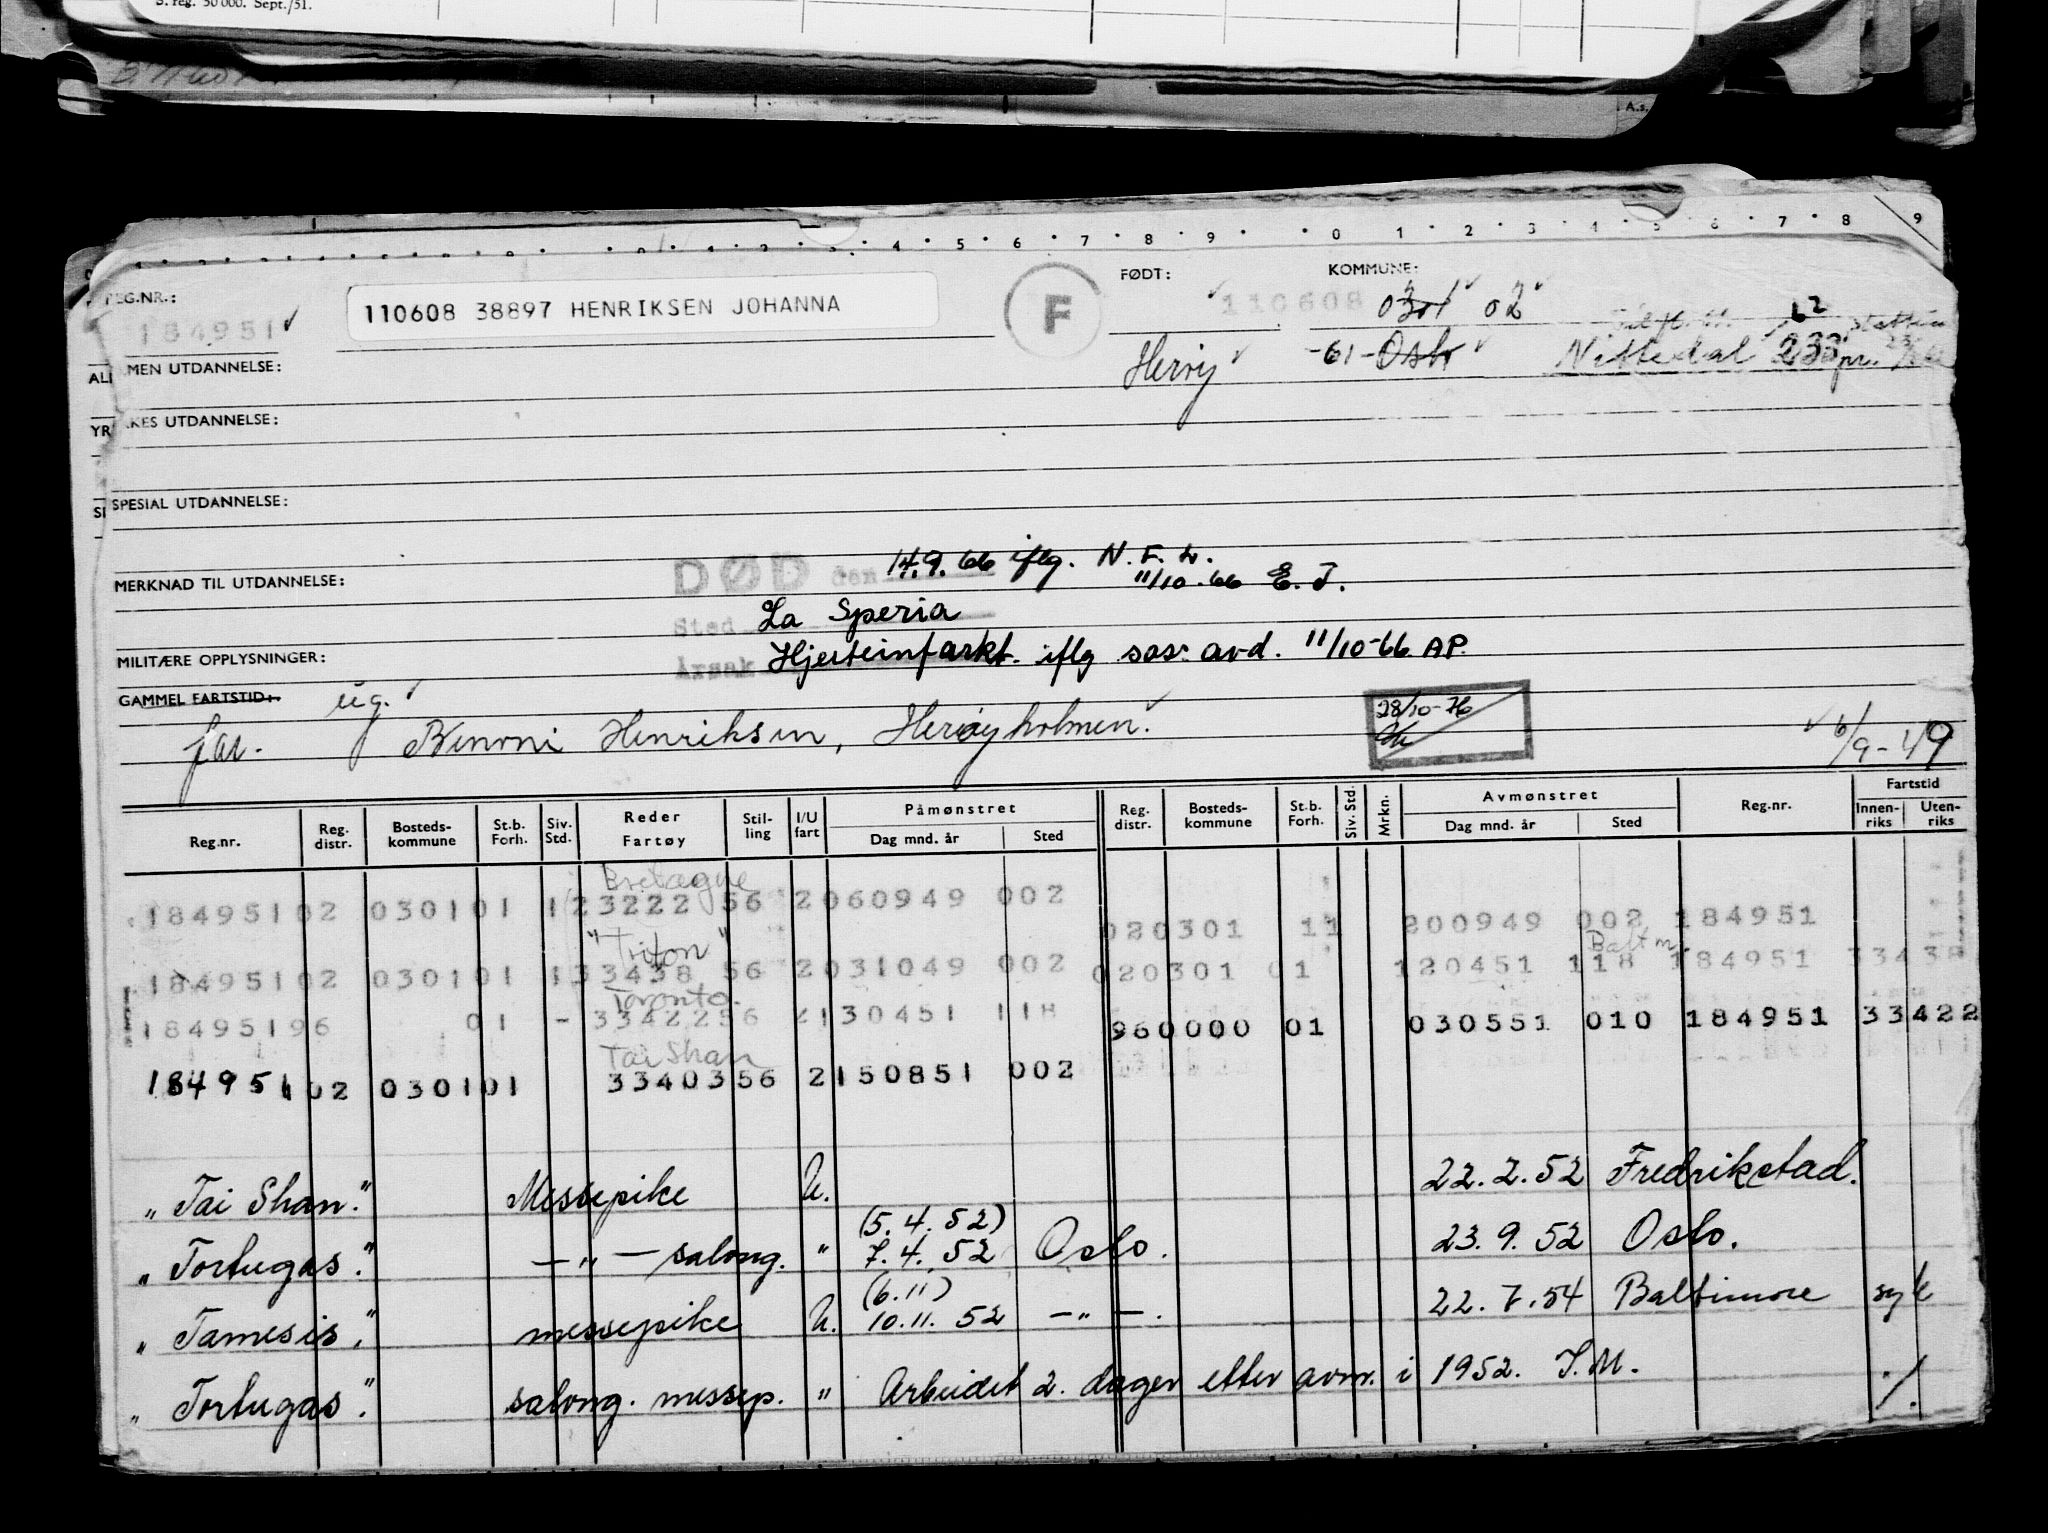 S. reg. 50 000. Sept./51.
A.s.
4 5 6 7 8 9 0 1 2 3 4 5 6 7 8 9
EG.NR.: 110608 38897 HENRIKSEN JOHANNA F FØDT: KOMMUNE:
184951 110608 0301 02
Herøy -61- Oslo Nittedal 233
ALL MEN UTDANNELSE:
YR KES UTDANNELSE:
SPESIAL UTDANNELSE:
MERKNAD TIL UTDANNELSE: DØD den 14.9.66 iflg. N.F.L.
11/10-66 E.J.
Sted La Speria
MILITÆRE OPPLYSNINGER: Årsak Hjerteinfarkt. iflg sos. avd. 11/10-66 AP.
GAMMEL FARTSTID: ug.
far. Benoni Henriksen, Herøyholmen. 28/10-76 6/9-49
Reg.nr. Reg. distr. Bosteds-kommune St.b. Forh. Siv. Std. Reder Fartøy Stil-ling I/U fart Påmønstret Dag mnd. år Sted Reg. distr. Bosteds-kommune St.b. Forh. Siv. Std. Mrkn. Avmønstret Dag mnd. år Sted Reg.nr. Fartstid Innen-riks Uten-riks
Bretagne
184951 02 0301 01 1 23222 56 2 060949 002 02 0301 11 200949 002 184951
"Triton" Baltm.
184951 02 0301 01 1 33438 56 2 031049 002 02 0301 01 120451 118 184951 33438
Toronto.
184951 96 01 - 33422 56 2 130451 118 96 0000 01 030551 010 184951 33422
Tai Shan
184951 02 0301 01 33403 56 2 150851 002
"Tai Shan." Messepike U. 22.2.52 Fredrikstad.
(5.4.52)
"Tortugas." —"— salong. " 7.4.52 Oslo. 23.9.52 Oslo.
(6.11)
"Tamesis." messepike U. 10.11.52 —"—. 22.7.54 Baltimore syk
"Tortugas." salong. messep. " Arbeidet 2. dager etter avm. i 1952. J.M. ./.